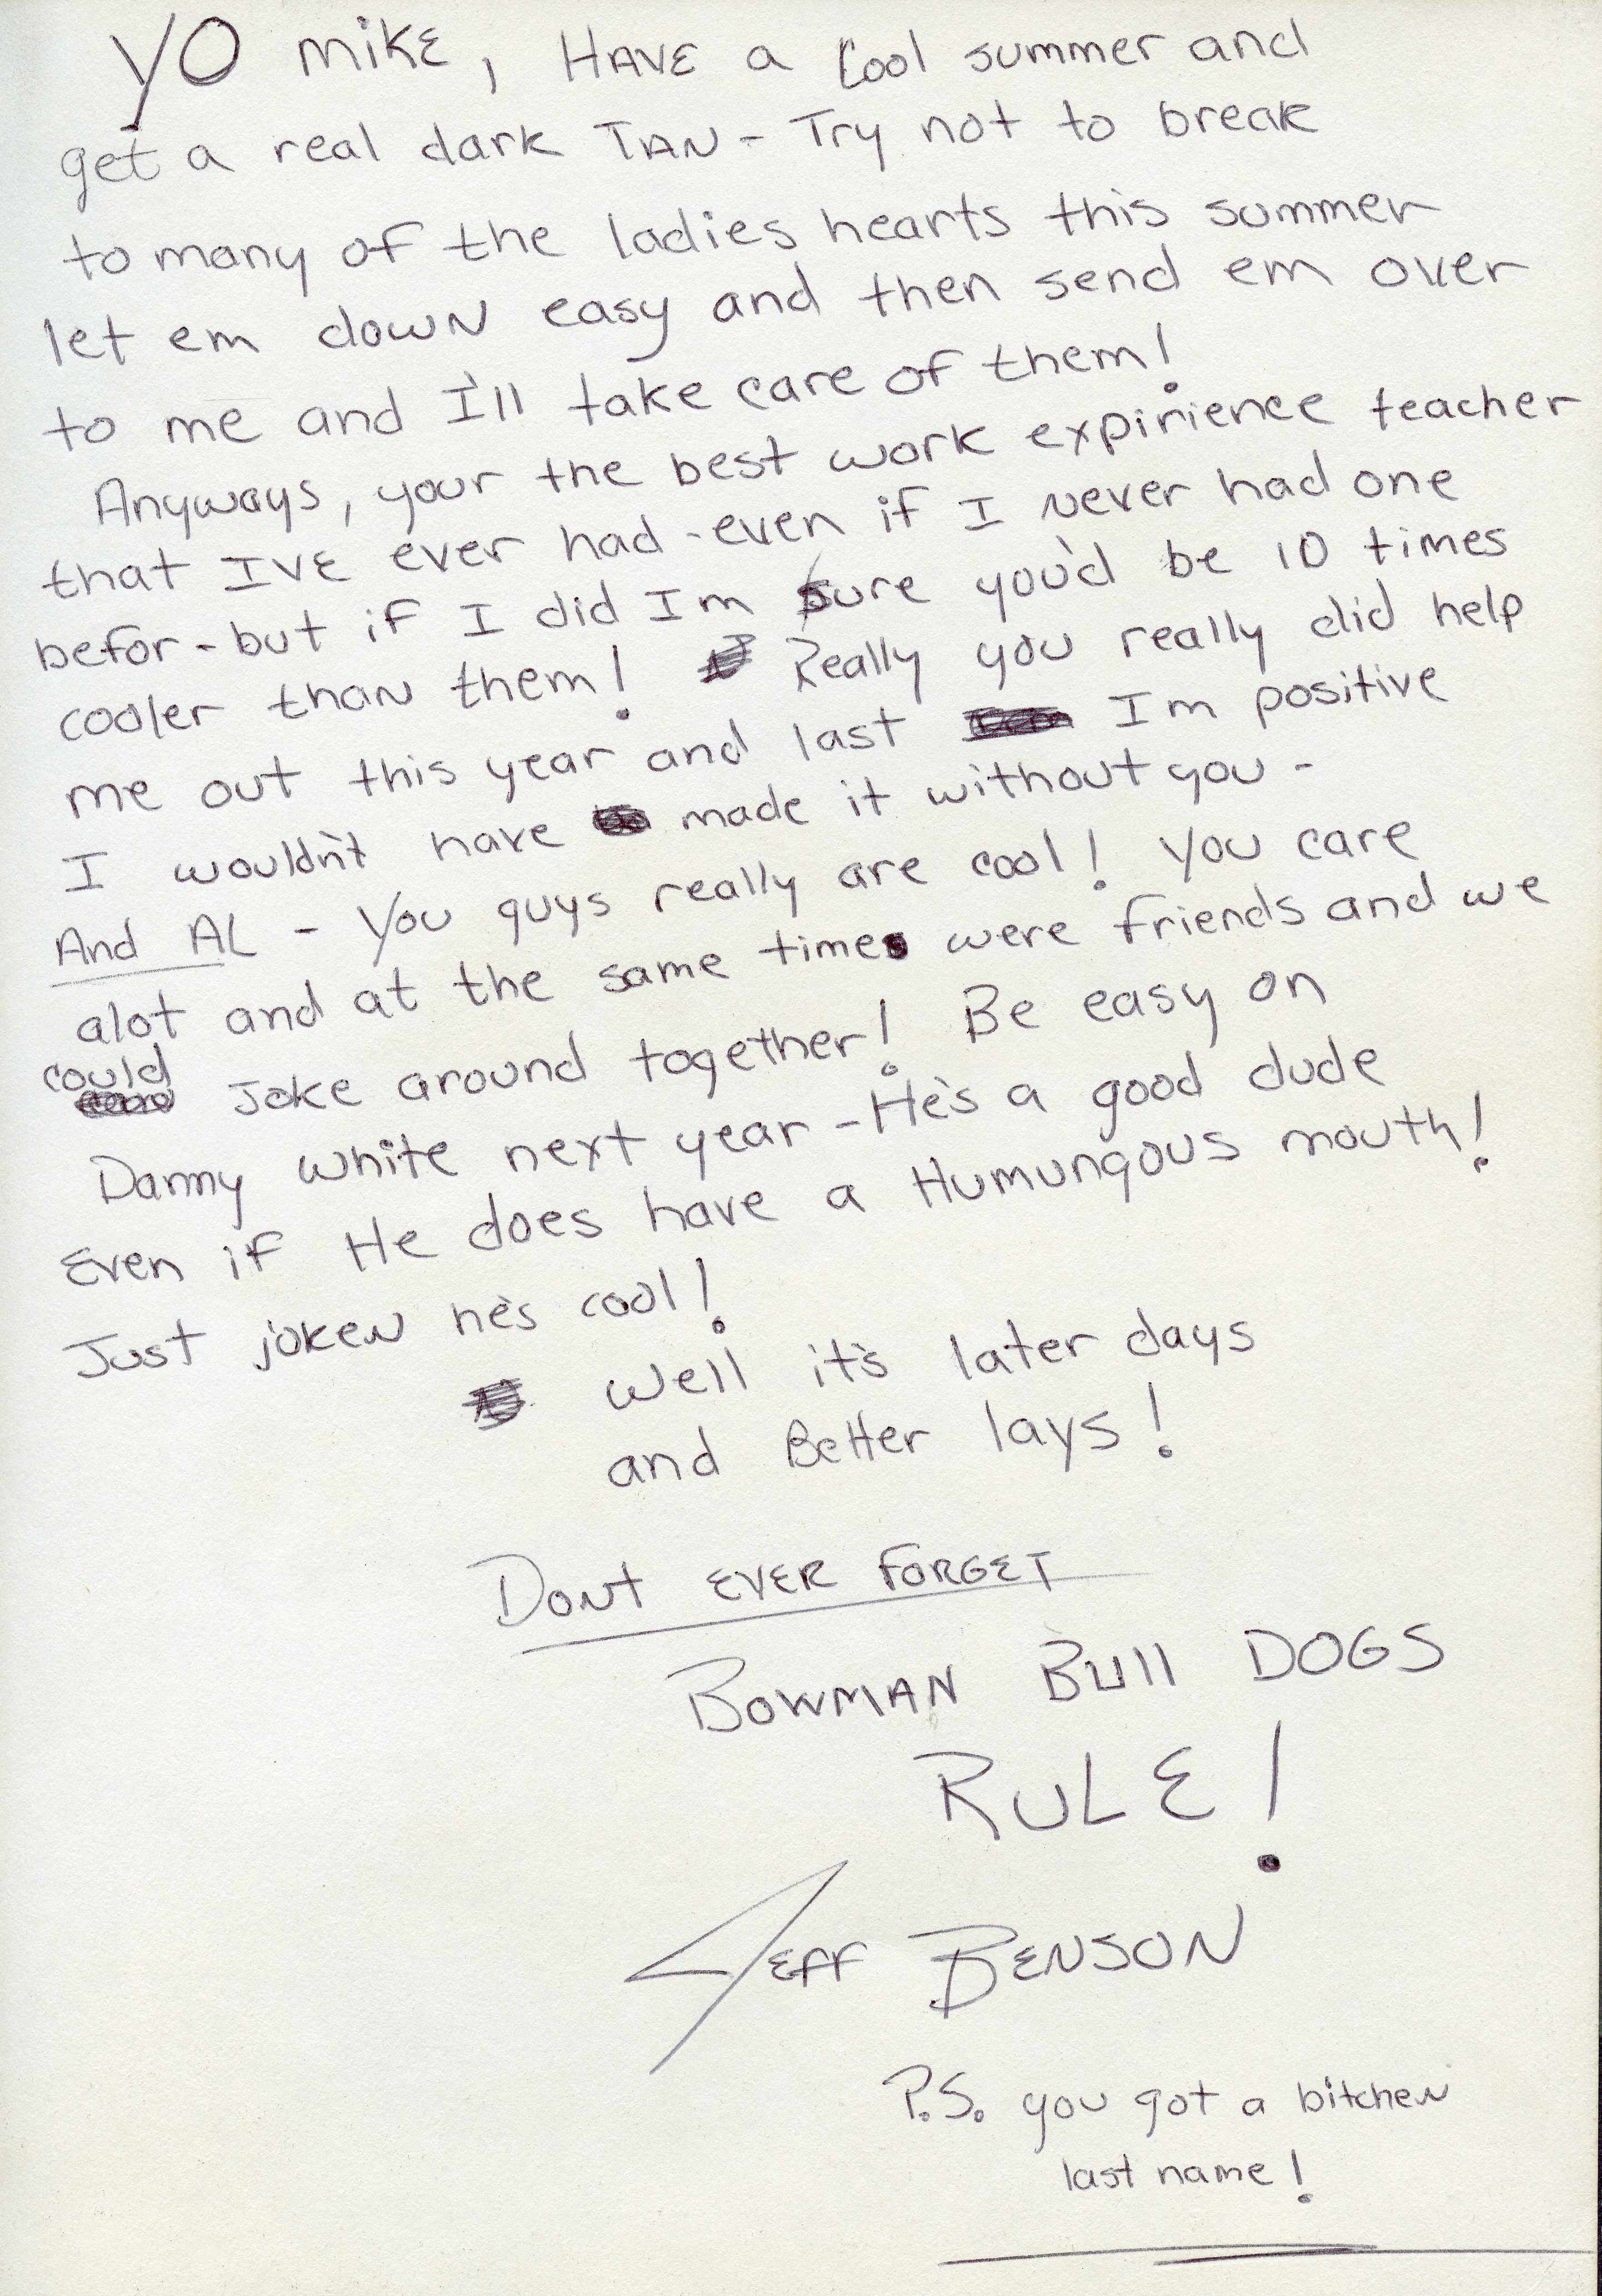 YO MIKE, HAVE a Cool summer and
get a real dark TAN - Try not to break
to many of the ladies hearts this summer
let em down easy and then send em over
to me and I'll take care of them!
Anyways, your the best work expirience teacher
that I'VE ever had - even if I never had one
befor - but if I did Im sure you'd be 10 times
cooler than them! Really you really did help
me out this year and last Im positive
I wouldn't have made it without you -
And AL - You guys really are cool! You care
alot and at the same time were friends and we
could Joke around together! Be easy on
Danny white next year - He's a good dude
Even if He does have a Humungous mouth!
Just joken he's cool!
Well it's later days
and Better lays!
DONT EVER FORGET
BOWMAN BUll DOGS
RULE!
JEFF BENSON
P.S. you got a bitchen
last name!